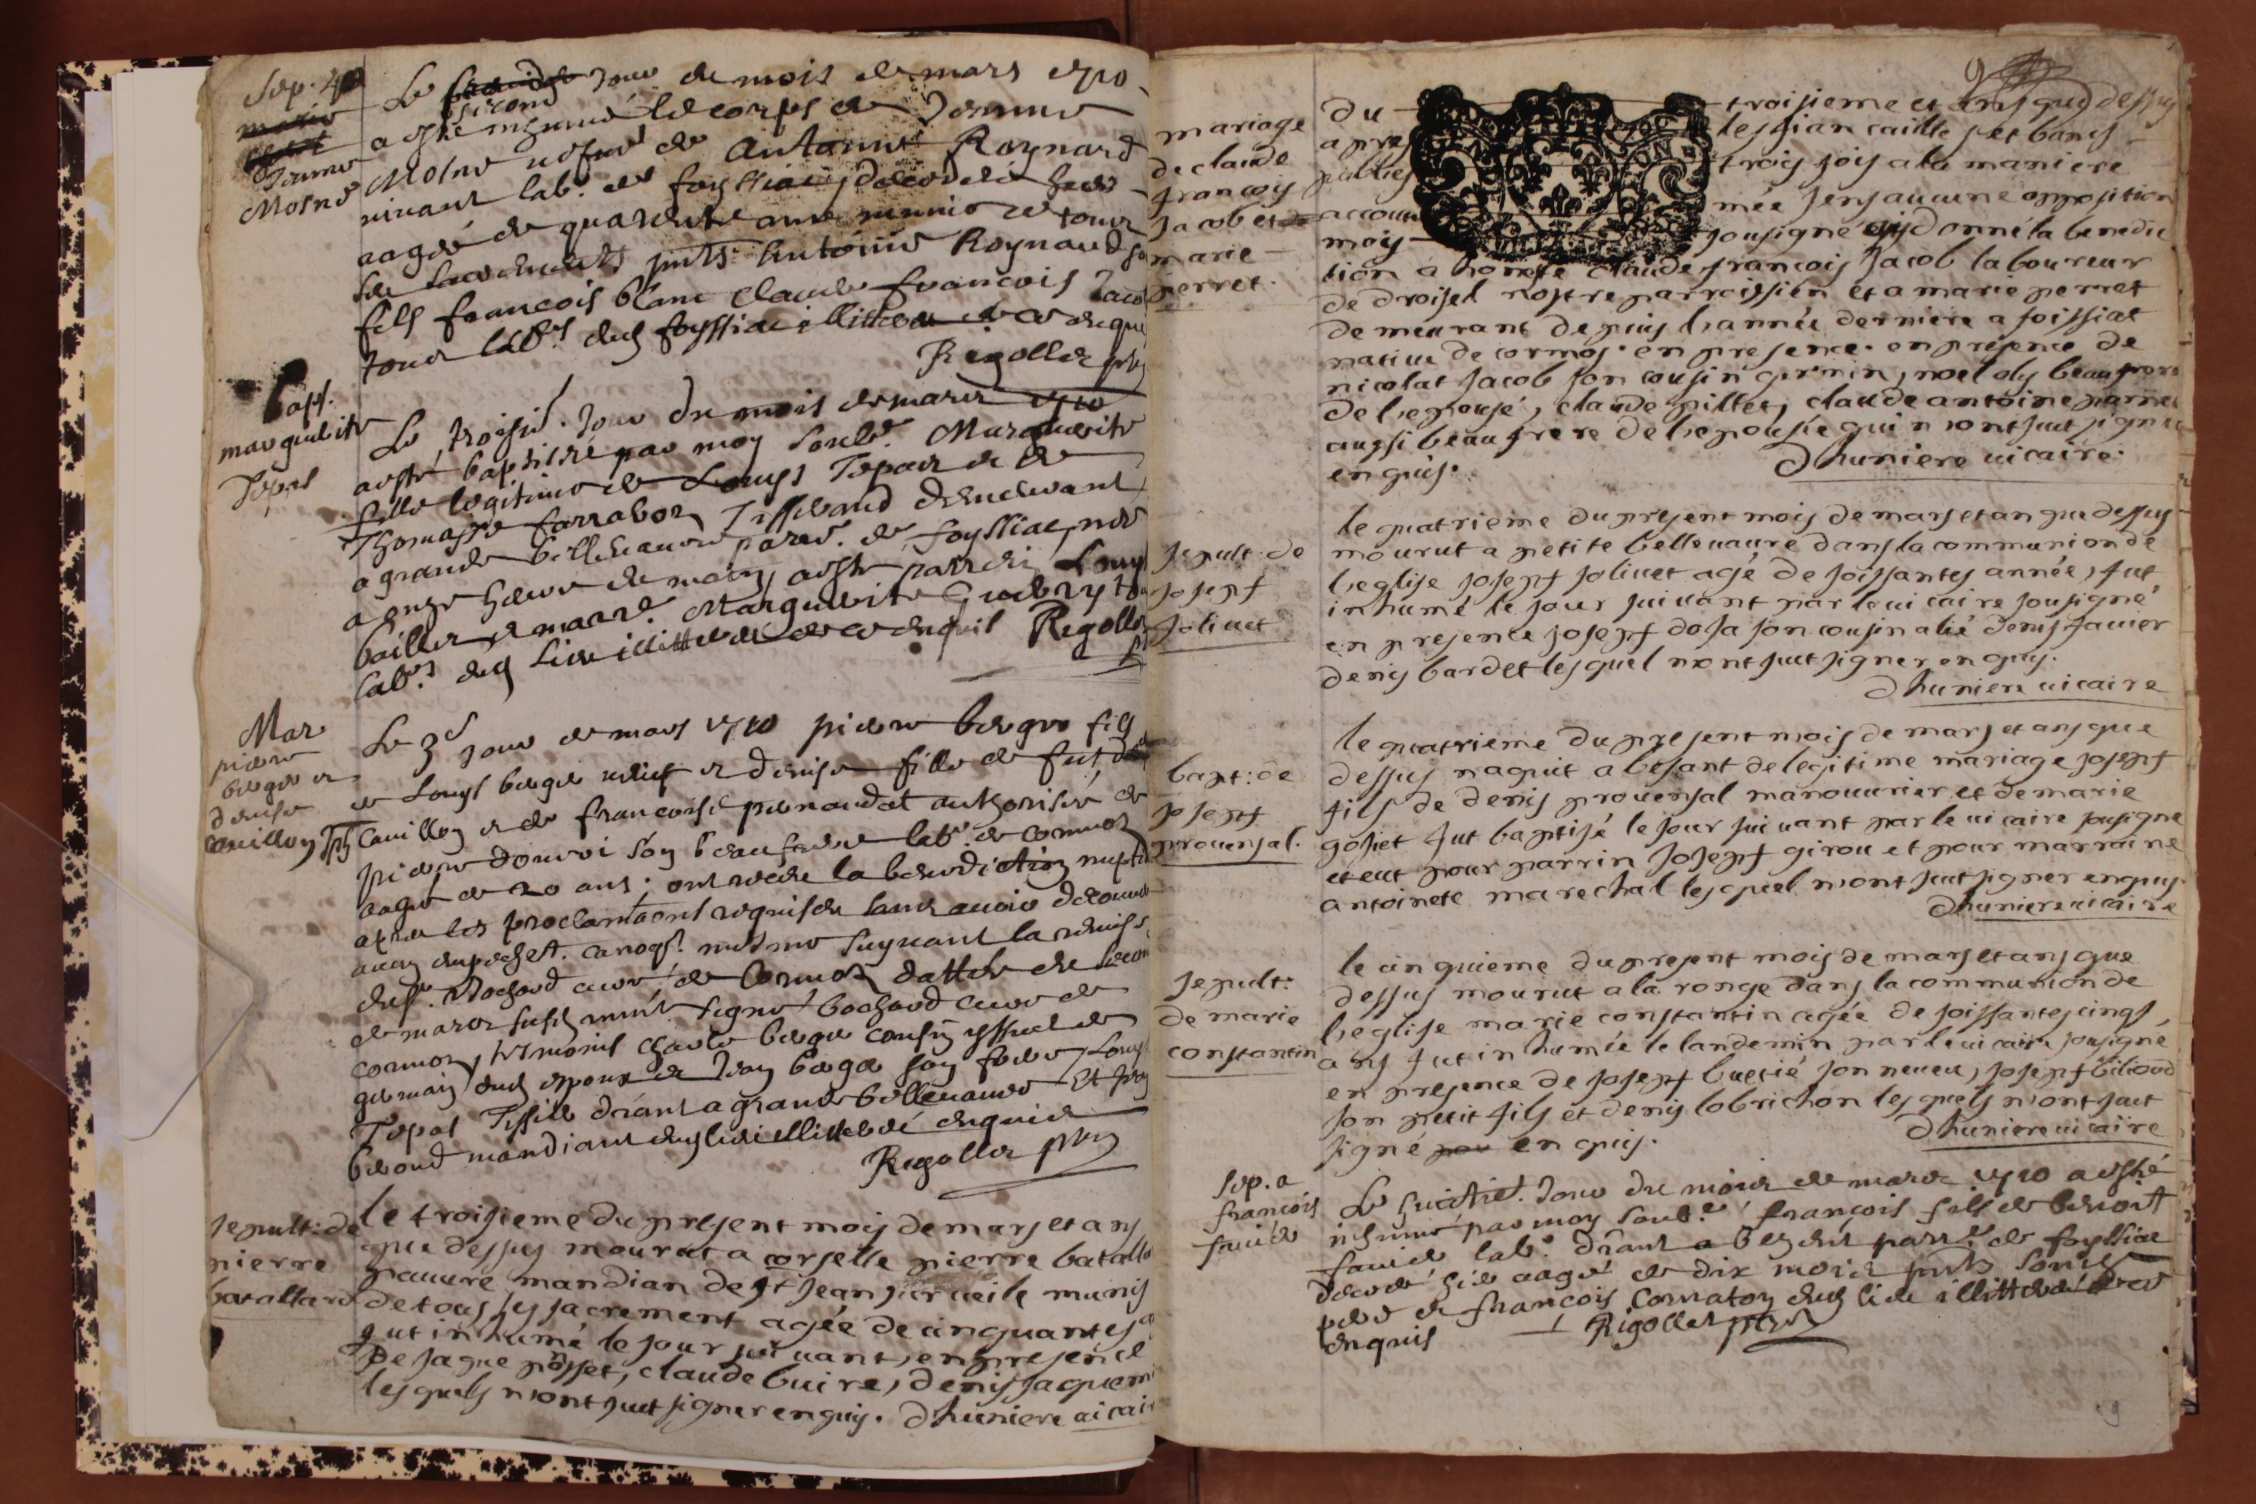 Sep. 
Jeanne
Moine
Le second jour du mois de mars 1710
a esté inhumé le corps de Jeanne
Moine vefve de Antoine Roynard
vivant lab. de foyssia decedée hier
aagée de quarente ans munie de tous
ses sacrements pnts Antoine Roynaud
fils francois blanc Claude francois Jacob
tous lab.rs dud foyssia illitteres de ce enquis
Regollet pbr
bapt.
marguerite
Tepat
Le troisie. Jour du mois de mars 1710
a esté baptisée par moy soub.é Marguerite
fille legitime de Louys Tepat et de
Thomasse farraboz Tisserand demeurant
a grande bellevavre parr.e de foyssiac, née
a onze heure du matin, a esté parrein Louys
baillet et marr.e Marguerite
lab.rs dud lieu illitteres de ce enquis Regollet
Mar
pierre
berger et
denise
Cavillon
Le 3e Jour de mars 1710 pierre berger fils
de Louys berger vefuf et denise fille de fut
Cavillon et de francoise pernaudat authorisée de
pierre donvoi son beaufrere lab. de cormoz
aagée de 20 ans; ont receu la benediction nuptiale
apres les proclamaons requises sans avoir decouvert
aucun empeschet. canoq. mesme suyvant la remise
du Sr. bochard curé de Cormoz dattée du second
de mars susd signé bochard curé de
cormoz, tesmoins charle berger cousin yssu de
germain dud epoux et Jean berger son frere, Louys
Tepat Tissier dmant a grande bellevavre et
beroud mandiant dud lieu illitteré enquis
Regollet pbr
sepult: de
pierre
bavallard
le troisieme du present mois de mars et ans
que dessus mourut a corselle pierre batallard
pauvre mandian de st jean munis
de tous ses sacrement agée de cinquantes
fut inhumé le jour suivant, en presence
de jaque posset, claude buire, denis jaquem
lesquels n'ont sceut signer enquis. Dhuniere vicaire
mariage
de claude
francois
jacob et
marie
perret.
9
du troisieme et ans que dessus
apres les fiancaille et bancs
publies trois fois a la maniere
accoutumée sens aucune opposition
moy sousigné ay donné la benedic
tion a honeste claude francois Jacob laboureur
de droisel nostre parroissien et a marie perret
demeurant depuis l'année derniere a foissiat
native de cormos. en presence. en presence de
nicolat jacob son cousin germin, noel oly beaufrere
de l'epousé, claude pillet, claude antoine perret
aussi beaufrere de l'epousée qui n'ont sceut signer
enquis. Dhuniere vicaire.
sepult: de
josept
jolivet
le quatrieme du present mois de mars et an que dessus
mourut a petite bellevavre dans la communion de
l'eglise josept jolivet agé de soissantes année, fut
inhumé le jour suivant par le vicaire sousigné
en presence josept dosa son cousin alié denis favier
denis bardet lesquel n'ont sceut signer enquis.
Dhuniere vicaire
bapt: de
josept
provensal.
le quatrieme du present mois de mars et ans que
dessus naquit a besant de legitime mariage josept
fils de denis provensal manouvrier et de marie
gosiet fut baptisé le jour suivant par le vicaire sousigné
et eut pour parrin Josept girou et pour marraine
antoinete marechal lesquel n'ont sceut signer enquis.
Dhuniere vicaire
sepult:
de marie
constantin
le cinquieme du present mois de mars et ans que
dessus mourut a la ronge dans la communion de
l'eglise marie constantin agée de soissantes cinqs
ans fut inhumée le landemin par le vicaire sousigné
en presence de josept buetié son neveu, josept biloud
son petit fils et denis lobrichon lesquels n'ont sceut
signé enquis. Dhuniere vicaire
Sep. a
francois
favier
Le huictie. Jour du mois de mars 1710 a esté
inhumé par moy soub.é françois fils de benoit
favier lab. dmant a bezent parr.e de foyssiat
decedé hier aagé de dix mois pnts sond
pere et francois Cornaton dud lieu illitteré de ce
enquis Rigollet pbr